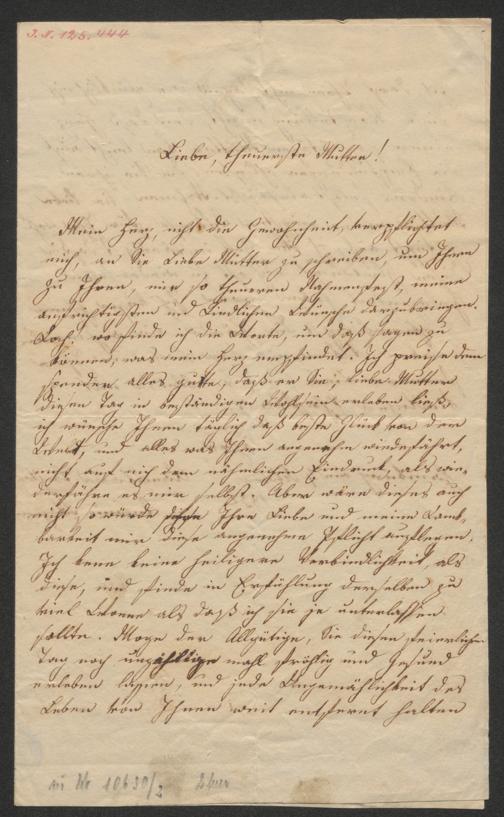 J.N. 125.444
Liebe, theuerste Mutter!
Mein Herz, nicht die Gewohnheit, verpflichtet
mich, an Sie Liebe Mutter zu schreiben, um Ihnen
zu Ihren, mir so theueren Nahmensfest, meine
aufrichtigsten und Kindlichen Wünsche darzubringen.
Doch, wo finde ich die Worte, um daß sagen zu
können, was mein Herz empfindet. Ich preise dem
Spender alles gutte, daß er Sie, liebe Mutter
diesen Tag in beständigen Wohlsein erleben ließ,
ich wünsche Ihnen täglich daß beste Glück von der
Welt, und alles was Ihnen angenehm wiederfährt,
nicht auf mich dem nähmlichen Eindruck, als wie-
derfähre es mir selbst. Aber wäre dieses auch
nicht so würde Ihre Liebe und meine Dank-
barkeit mir diese angenehme Pflicht auflegen.
Ich kenne keine heiligere Verbindlichkeit, als
diese, und finde in Erfühlung derselben zu
viel Wonne als daß ich sie je unterlassen
sollte. Möge der Allgütige, Sie diesen feierlichen
Tag noch unzählige mahl fröhlig und Gesund
erleben lassen, und jede Ungemächlichkeit des
Leben von Ihnen weit entfernt halten
zu Nr 10630/2